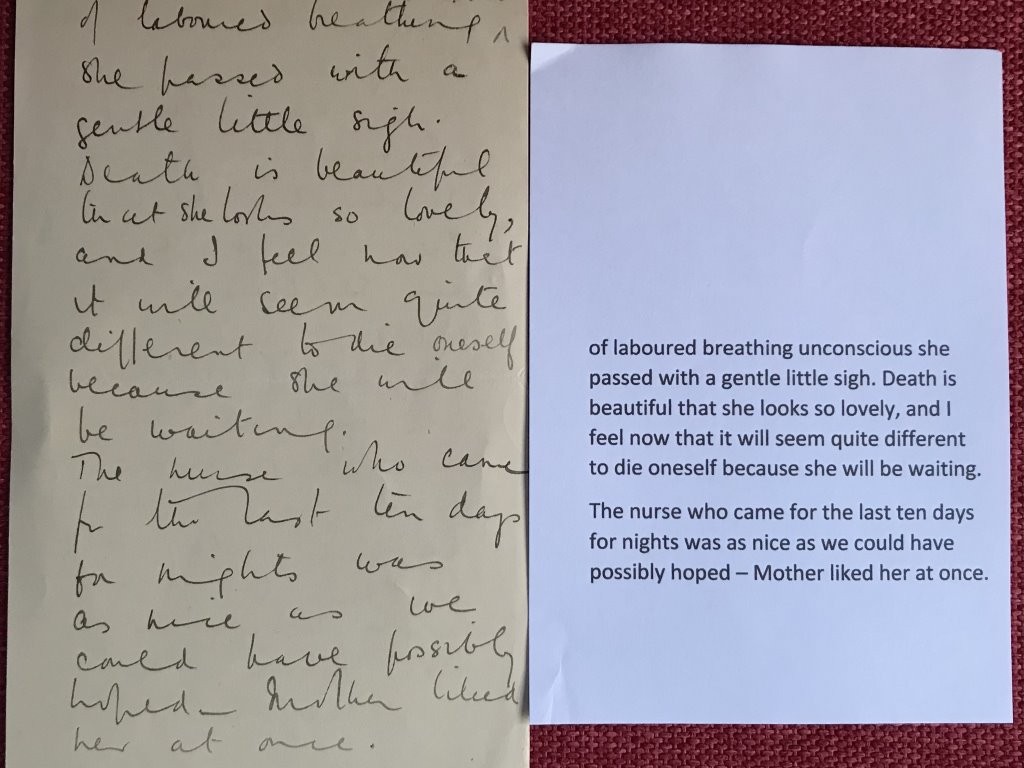 of laboured breathing ^
she passed with a
gentle little sigh.
Death is beautiful
she looks so lovely,
and I feel now that
it will seem quite
different to die oneself
because she will
be waiting.
The nurse who came
for the last ten days
for nights was
as nice as we
could have possibly
hoped – Mother liked
her at once.
of laboured breathing unconscious she
passed with a gentle little sigh. Death is
beautiful that she looks so lovely, and I
feel now that it will seem quite different
to die oneself because she will be waiting.
The nurse who came for the last ten days
for nights was as nice as we could have
possibly hoped – Mother liked her at once.